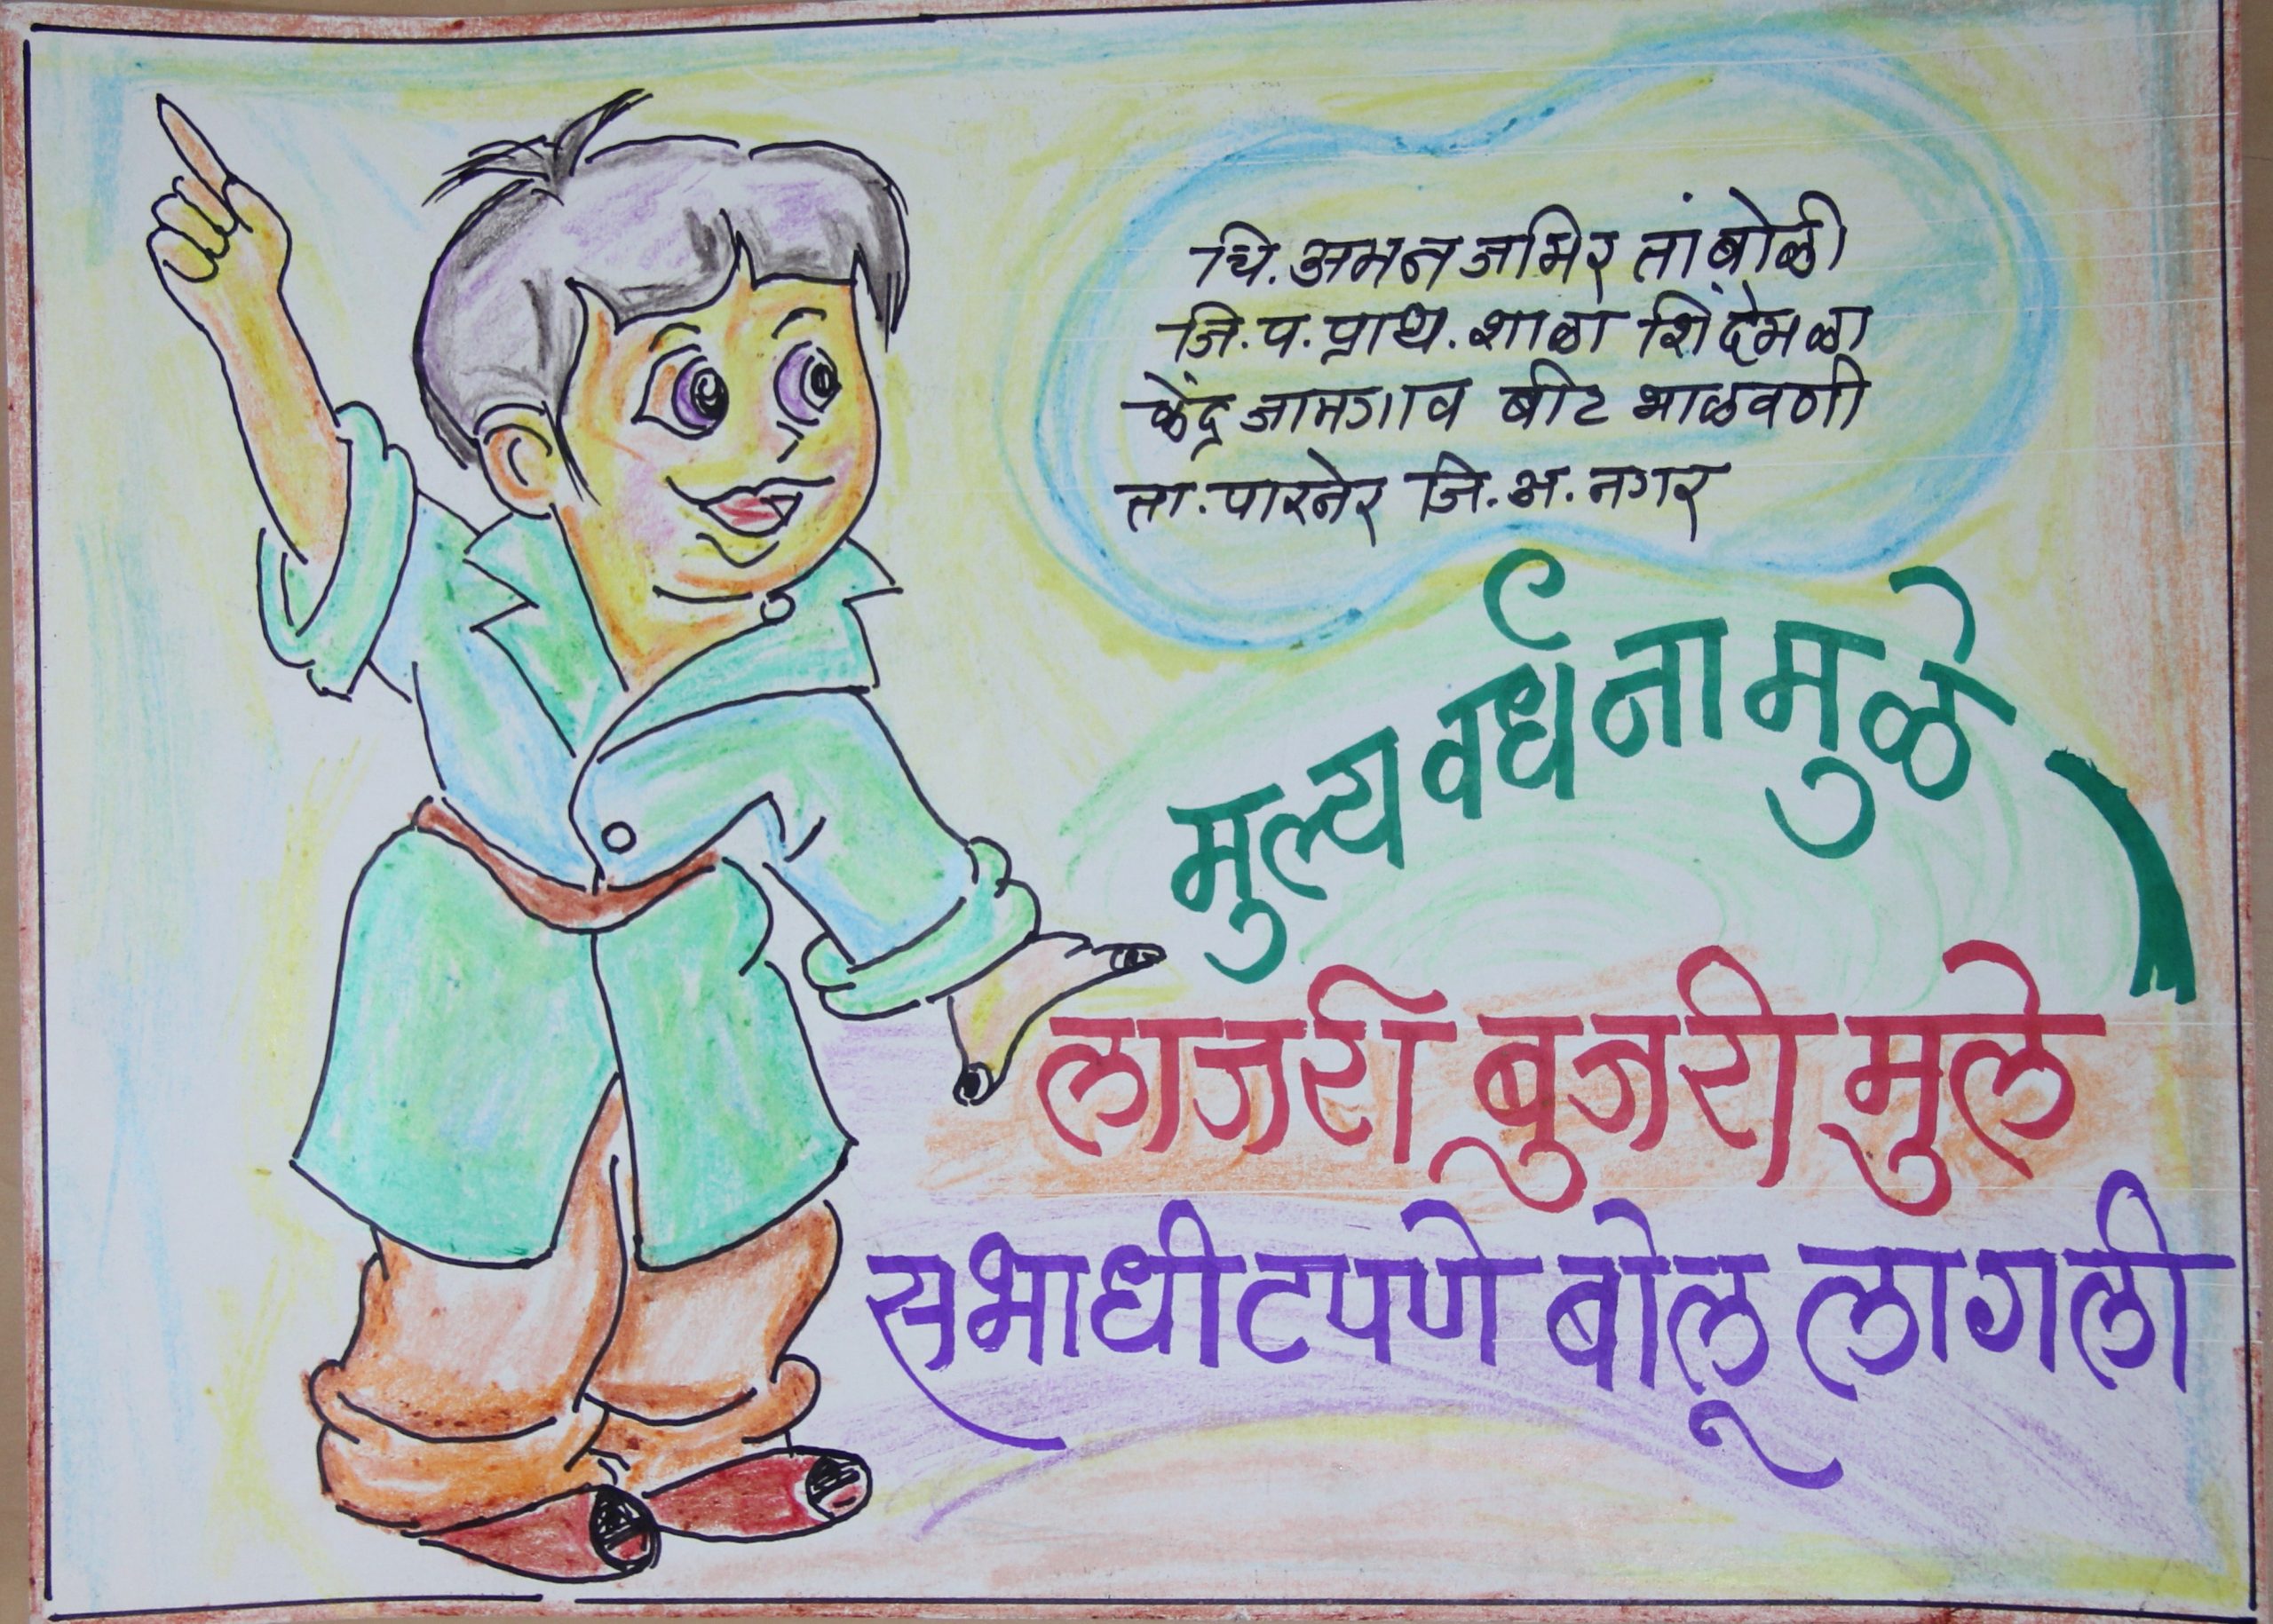 चि. अमन जमिर तांबोळी
जि. प. प्राथ. शाळा शिंदेमळा
केंद्र जामगाव बीट भाळवणी
ता. पारनेर जि. अ. नगर
मुल्यवर्धनामुळे
लाजरी बुजरी मुले
सभाधीटपणे बोलू लागली